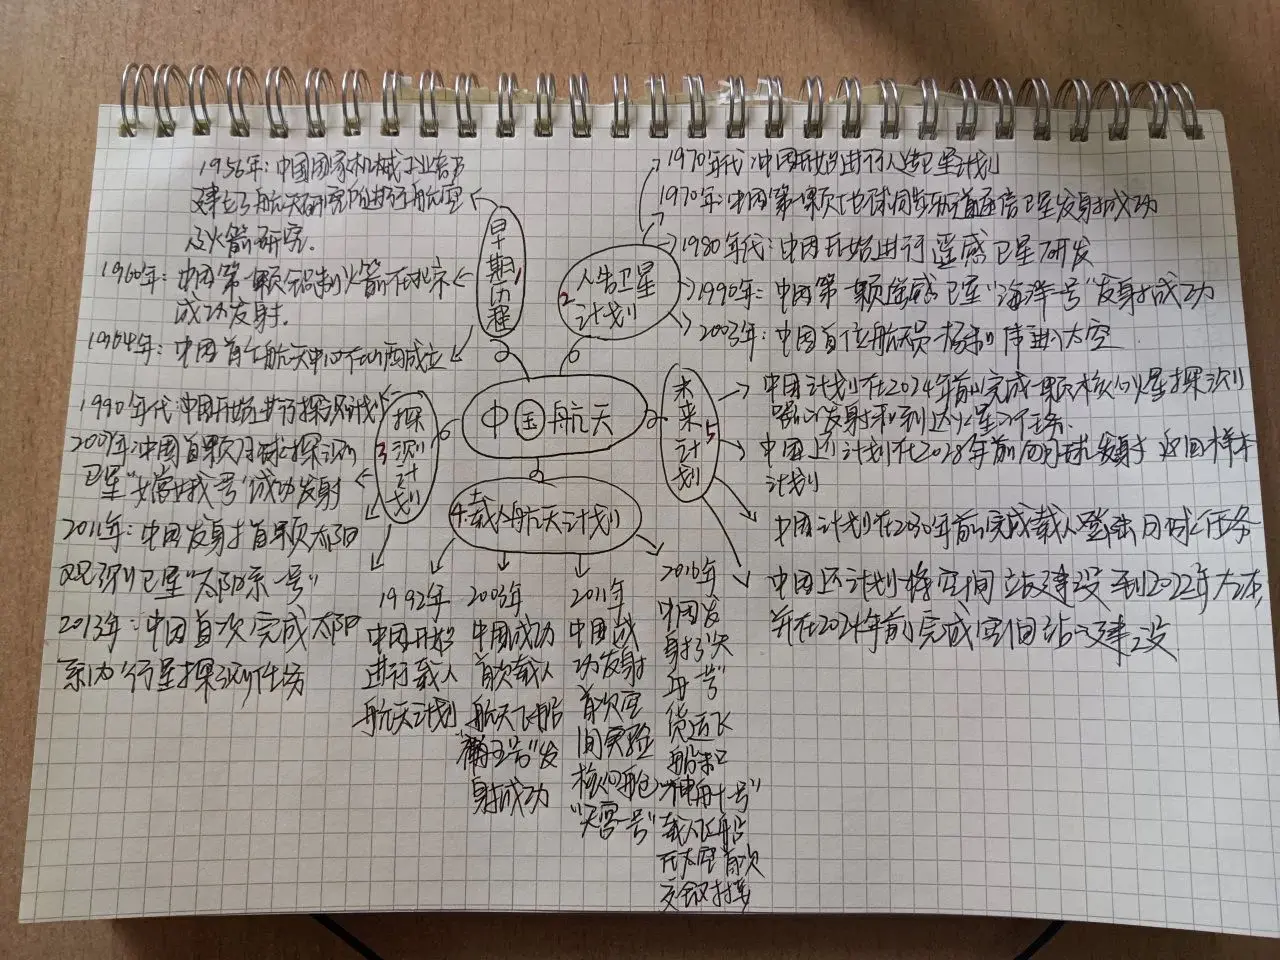 中国航天
早期历程
1956年:中国国家机械工业部
建立了航天研究院进行航空
及火箭研究.
1960年:中国第一颗 火箭在北京
成功发射.
1964年:中国首个航天中心在 成立
2 人告卫星
计划
1970年代:中国开始进行人造卫星计划
1970年:中国第一颗地球同步轨道通信卫星发射成功
1980年代:中国开始进行遥感卫星研发
1990年:中国第一颗遥感卫星“海洋一号”发射成功
2003年:中国首位航天员杨利伟进入太空
3 探测计划
1990年代:中国开始进行探测计划
2007年:中国首颗月球探测
卫星“嫦娥一号”成功发射
2011年:中国发射首颗太阳
观测卫星“太阳系一号”
2013年:中国首次完成太阳
系小行星探测任务
4.载人航天计划
1992年
中国开始
进行载人
航天计划
2003年
中国成功
首次载人
航天飞船
五号”发
射成功
2011年
中国成
功发射
首次空
间实验
核心舱
“天宫一号”
2016年
中国发
射了“天
舟一号”
货运飞
船和
“神舟十号”
载人飞船
在太空首次
交会对接
未来计划 5
中国计划在2024年前完成一颗核心火星探测
器的发射和到达火星的任务.
中国还计划在2028年前向月球发射返回样本
计划
中国计划在2030年前完成载人登陆月球任务
中国还计划将空间站建设到2022年左右,
并在2024年前完成空间站之建设